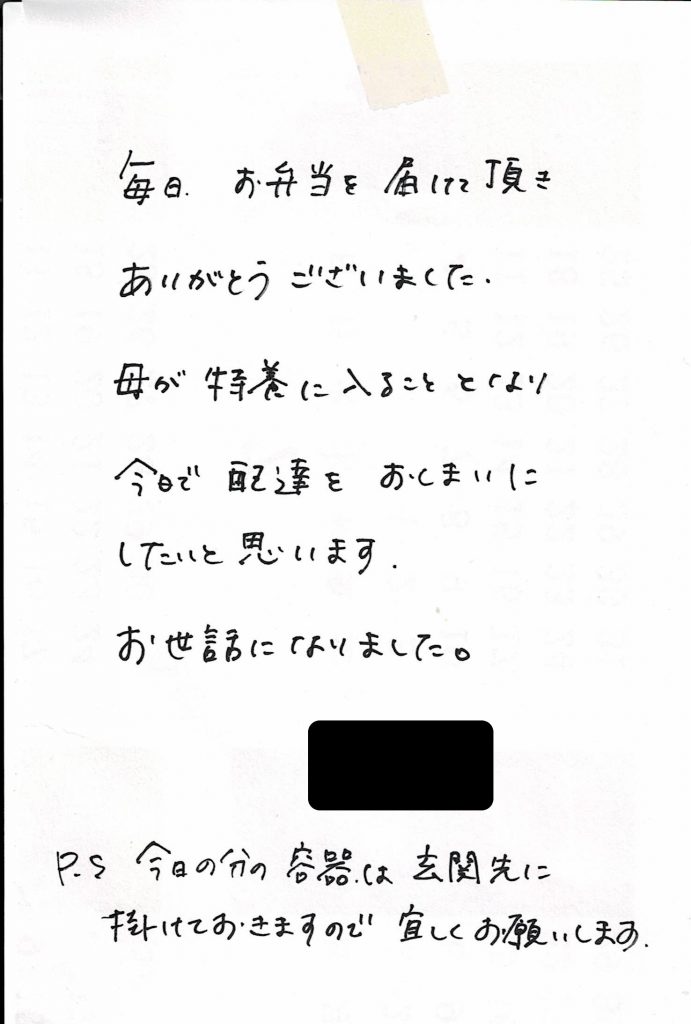 毎日. お弁当を 届けて頂き
ありがとう ございました.
母が 特養に入ることとなり
今日で 配達を おしまいに
したいと思います.
お世話になりました。
P.S 今日の分の 容器は 玄関先に
掛けておきますので 宜しくお願いします.